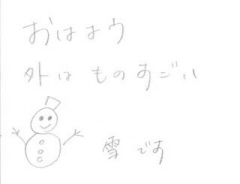 おはよう
外は ものすごい
雪 です